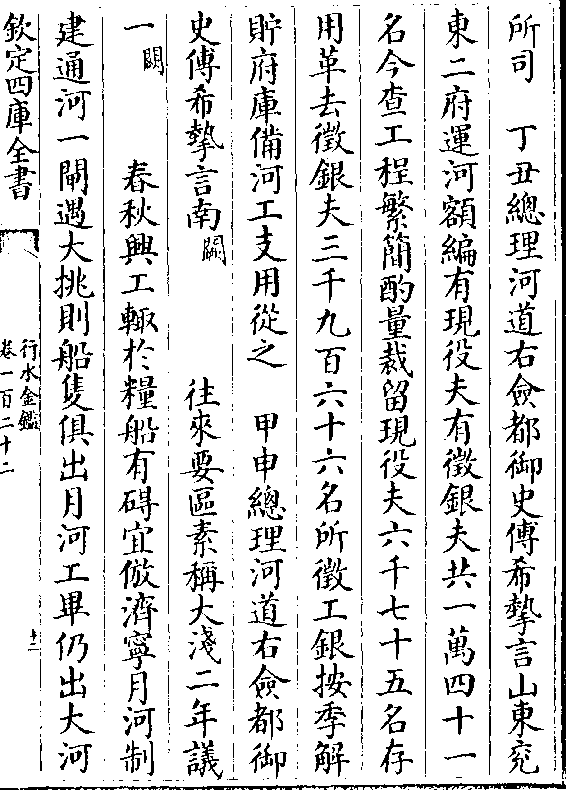 所司　丁丑總理河道右僉都御史傅希摯言山東兖
東二府運河額編有現役夫有徵銀夫共一萬四十一
名今查工程繁簡酌量裁留現役夫六千七十五名存
用革去徵銀夫三千九百六十六名所徵工銀按季解
貯府庫備河工支用從之　甲申總理河道右僉都御
史傅希摯言南闕　往來要區素稱大淺二年議
一闕　春秋興工輙於糧船有碍宜倣濟寧月河制
建通河一閘遇大挑則船隻俱出月河工畢仍出大河
欽定四庫全書
行水金鑑
卷一百二十二
十二